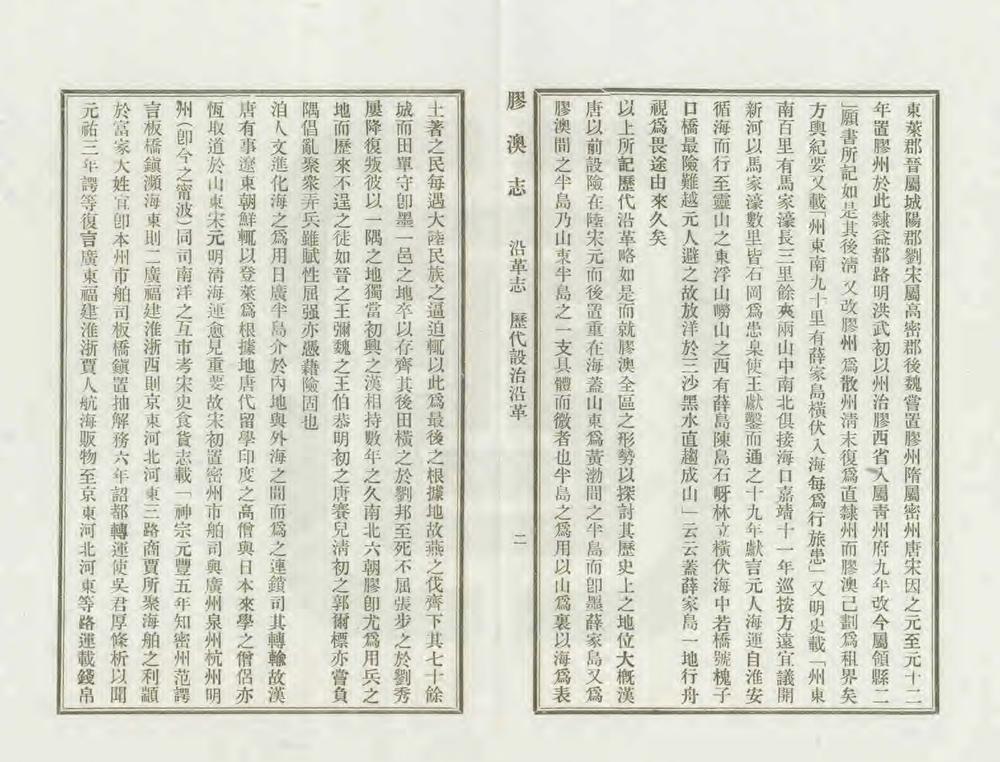 東萊郡晉屬城陽郡劉宋屬高密郡後魏嘗置膠州隋屬密州唐宋因之元至元十二
年置膠州於此隸益都路明洪武初以州治膠西省入屬青州府九年改今屬領縣二
」顧書所記如是其後清又改膠州爲散州清末復爲直隸州而膠澳已劃爲租界矣
方輿紀要又載「州東南九十里有薛家島橫伏入海每爲行旅患」又明史載「州東
南百里有馬家濠長三里餘夾兩山中南北俱接海口嘉靖十一年巡按方遠宜議開
新河以馬家濠數里皆石岡爲患臬使王獻鑿而通之十九年獻言元人海運自淮安
循海而行至靈山之東浮山嶗山之西有薛島陳島石岈林立橫伏海中若橋號槐子
口橋最險難越元人避之故放洋於三沙黑水直趨成山」云云蓋薛家島一地行舟
視爲畏途由來久矣
以上所記歷代沿革略如是而就膠澳全區之形勢以探討其歷史上之地位大概漢
唐以前設險在陸宋元而後置重在海蓋山東爲黃渤間之半島而卽墨薛家島又爲
膠澳間之半島乃山東半島之一支具體而微者也半島之爲用以山爲裏以海爲表
膠澳志 沿革志 歷代設治沿革 二
土著之民每遇大陸民族之逼迫輒以此爲最後之根據地故燕之伐齊下其七十餘
城而田單守卽墨一邑之地卒以存齊其後田橫之於劉邦至死不屈張步之於劉秀
屢降復叛彼以一隅之地獨當初興之漢相持數年之久南北六朝膠卽尤爲用兵之
地而歷來不逞之徒如晉之王彌魏之王伯恭明初之唐賽兒清初之郭爾標亦嘗負
隅倡亂聚衆弄兵雖賦性屈强亦憑藉險固也
洎人文進化海之爲用日廣半島介於內地與外海之間而爲之連鎖司其轉輸故漢
唐有事遼東朝鮮輒以登萊爲根據地唐代留學印度之高僧與日本來學之僧侶亦
恆取道於山東宋元明清海運愈見重要故宋初置密州市舶司與廣州泉州杭州明
州（卽今之甯波）同司南洋之互市考宋史食貨志載「神宗元豐五年知密州范諤
言板橋鎮瀕海東則二廣福建淮浙西則京東河北河東三路商賈所聚海舶之利顓
於富家大姓宜卽本州市舶司板橋鎮置抽解務六年詔都轉運使吳君厚條析以聞
元祐三年諤等復言廣東福建淮浙賈人航海販物至京東河北河東等路運載錢帛